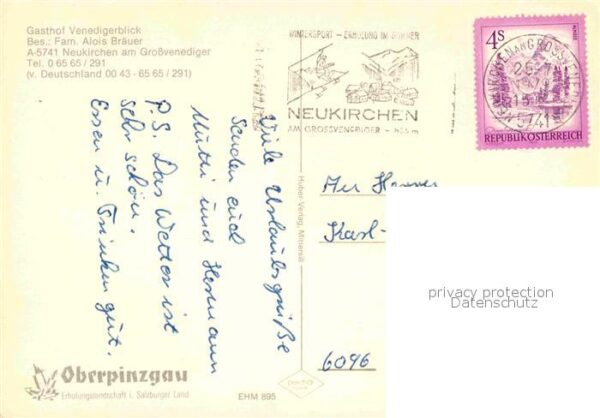 Gasthof Venedigerblick
Bes.: Fam. Alois Bräuer
A-5741 Neukirchen am Großvenediger
Tel. 0 65 65 / 291
(v. Deutschland 00 43 - 65 65 / 291)
WINTERSPORT – ERHOLUNG IM SOMMER
NEUKIRCHEN
AM GROSSVENEDIGER - 855 m
4 S
REPUBLIK ÖSTERREICH
5741
Viele Urlaubsgrüße
senden euch
Mutti und Hermann
P.S. Das Wetter ist
sehr schön.
Essen u. Trinken gut.
Huber-Verlag, Mittersill
Karl-
6096
privacy protection
Datenschutz
Oberpinzgau
Erholungslandschaft i. Salzburger Land
EHM 895